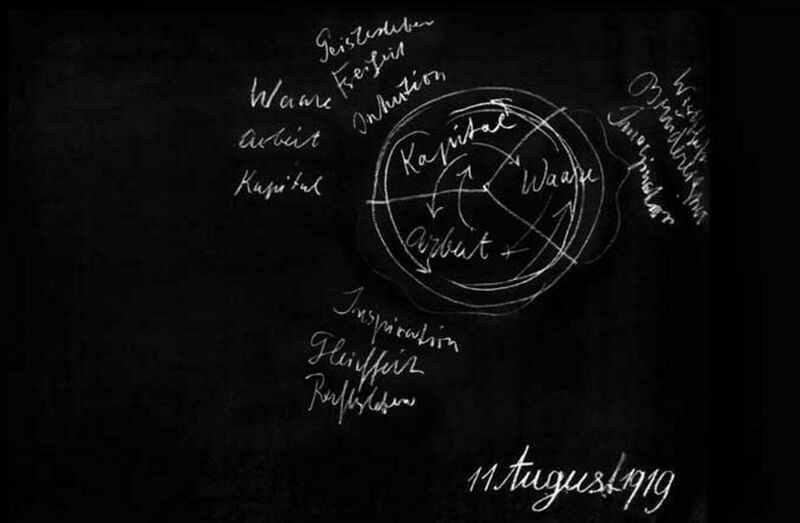 Geistesleben
Freiheit
Intuition
Waare
Arbeit
Kapital
Kapital
Waare
Arbeit
Imagination
Brüderlichkeit
Inspiration
Gleichheit
Rechtsleben
11 August 1919